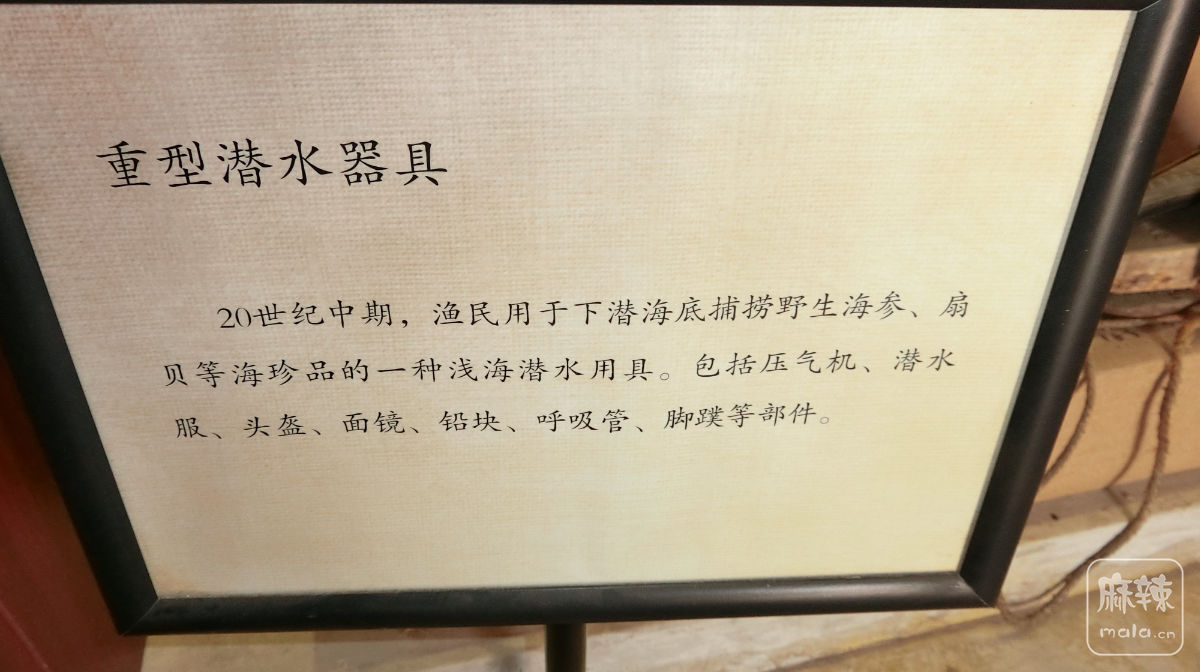 重型潜水器具
20世纪中期，渔民用于下潜海底捕捞野生海参、扇
贝等海珍品的一种浅海潜水用具。包括压气机、潜水
服、头盔、面镜、铅块、呼吸管、脚蹼等部件。
麻辣
mala.cn